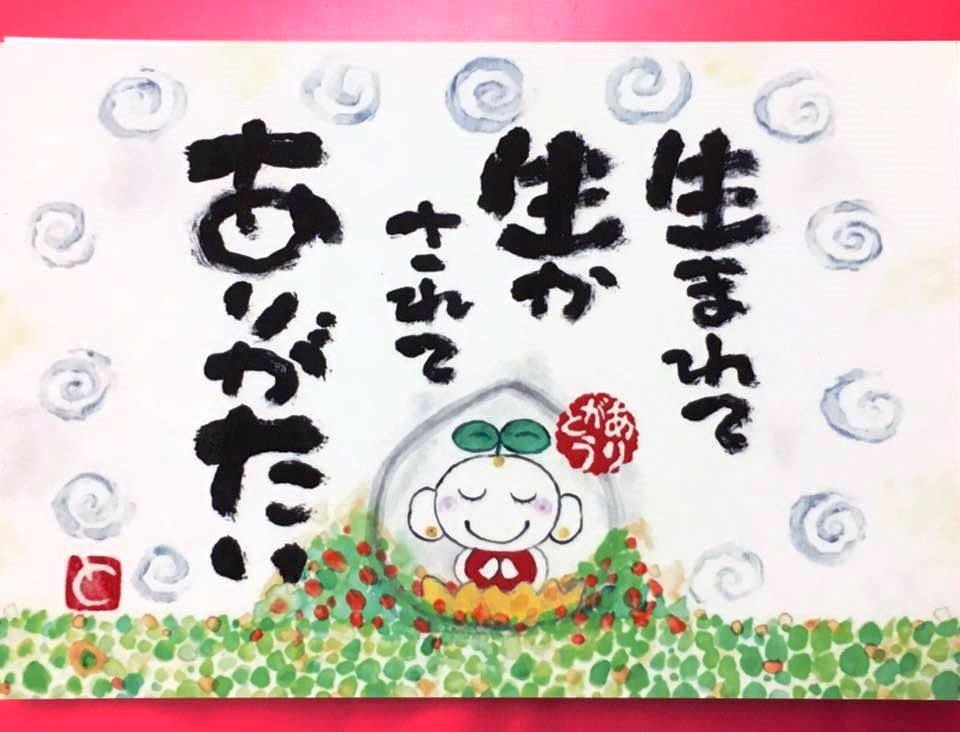 生まれて
生か
されて
ありがたい
ありがとう
と